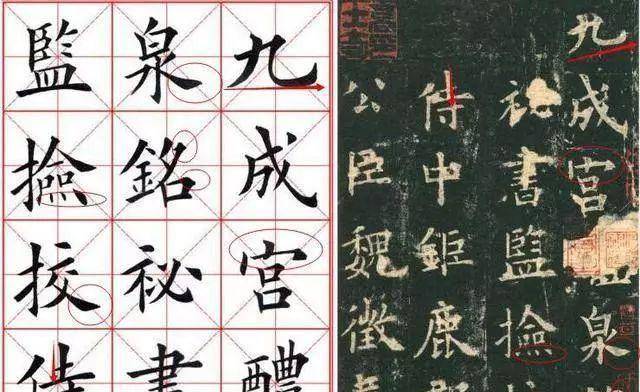 九成宮醴
泉銘祕書
監撿挍侍
九成宮泉
祕書監撿
侍中鉅鹿
公臣魏徵